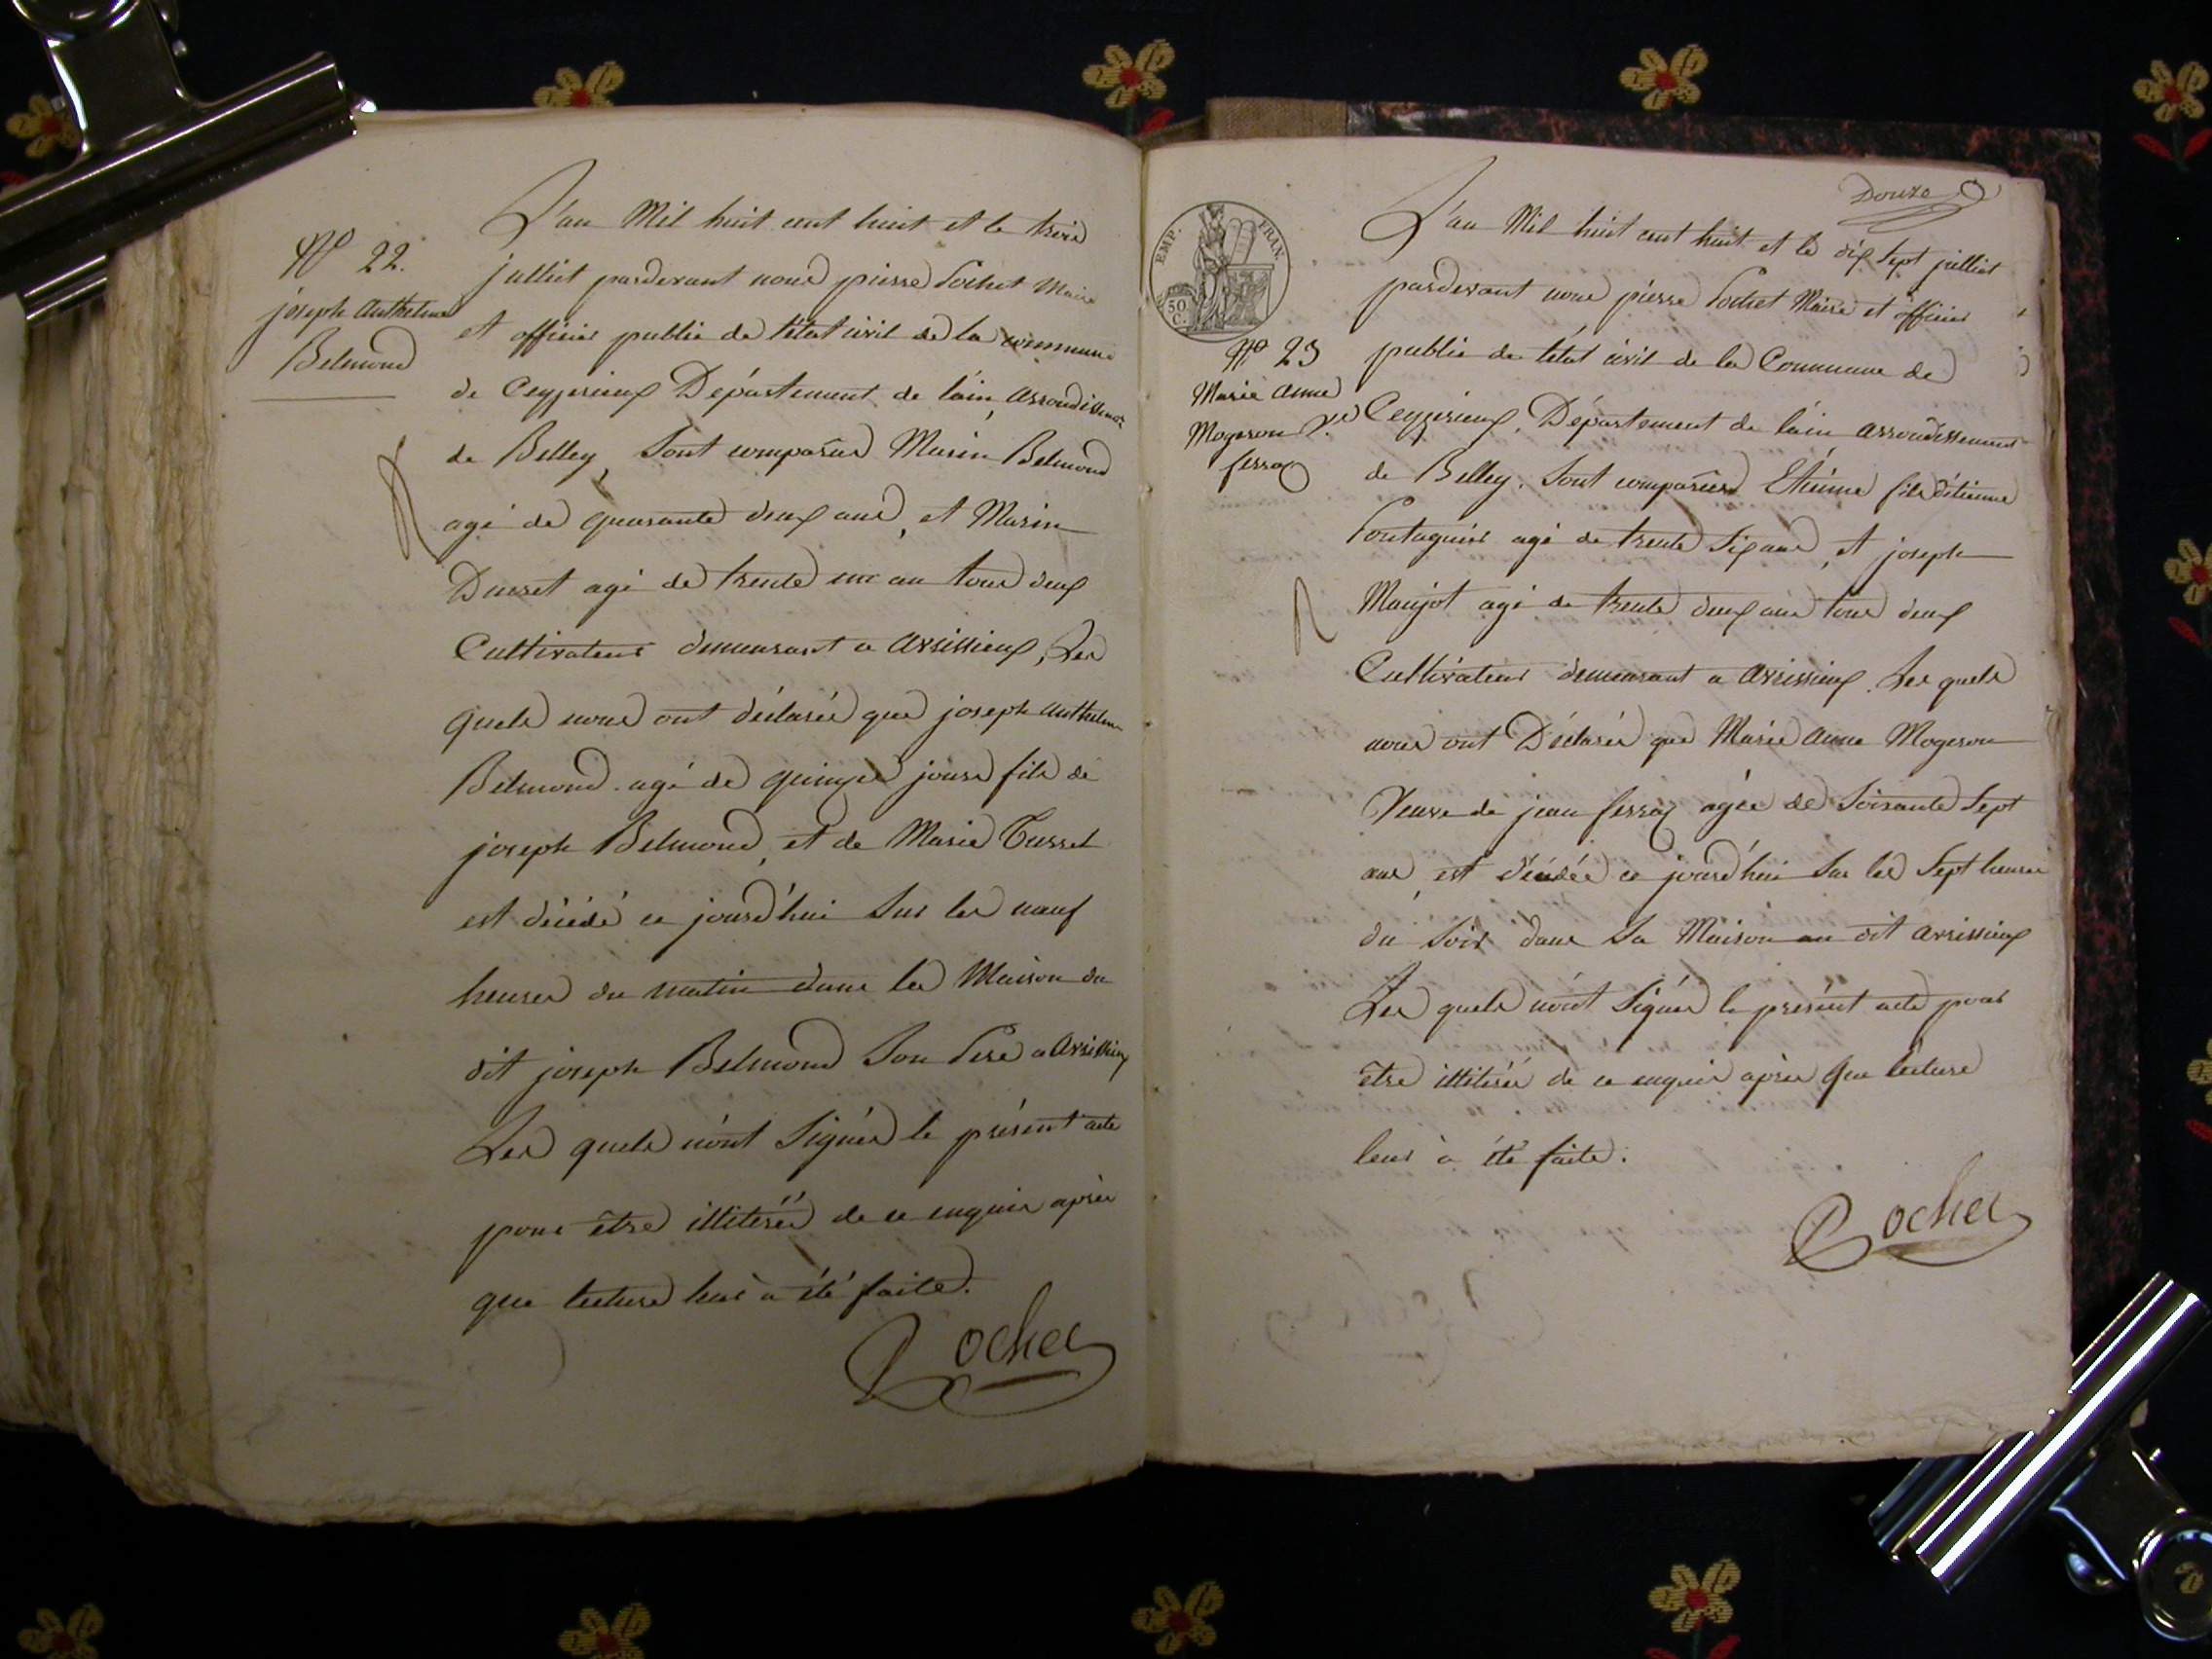 N° 22.
joseph Anthelme
Belmond
L'an Mil huit cent huit et le trois
julliet pardevant nous pierre Pochet Maire
et officier public de l'état civil de la commune
de Ceyzerieux Département de l'ain, arrondissement
de Belley, Sont comparus Marin Belmond
agé de quarante deux ans, et Marin
Ducret agé de trente un an tous deux
Cultivateurs demeurant a avrissieux, Les
quels nous ont déclarés que joseph anthelme
Belmond agé de quinze jours fils de
joseph Belmond, et de Marie Cusset
est décédé ce jourd'hui Sur les neuf
heures du matin dans la Maison du
dit joseph Belmond Son Pere a avrissieux
Les quels n'ont Signés le présent acte
pour être illiterés de ce enquis après
que lecture leur a été faite.
Pochet
Douze
EMP. FRAN.
50 C.
N° 23
Marie anne
Mogeron Ve
ferraz
L'an Mil huit cent huit et le dix Sept julliet
pardevant nous pierre Pochet Maire et officier
public de l'état civil de la Commune de
Ceyzerieux, Département de l'ain arrondissement
de Belley. Sont comparus Etienne fils d'étienne
Pontagnier agé de trente Six ans, et joseph
Maujot agé de trente deux ans tous deux
Cultivateurs demeurant a avrissieux. Les quels
nous ont Déclarés que Marie anne Mogeron
Veuve de jean ferraz agée de Soixante Sept
ans, est décédée ce jourd'hui Sur les Sept heures
du Soir dans Sa Maison au dit avrissieux
Les quels n'ont Signés le présent acte pour
être illiterés de ce enquis après que lecture
leur à été faite.
Pochet